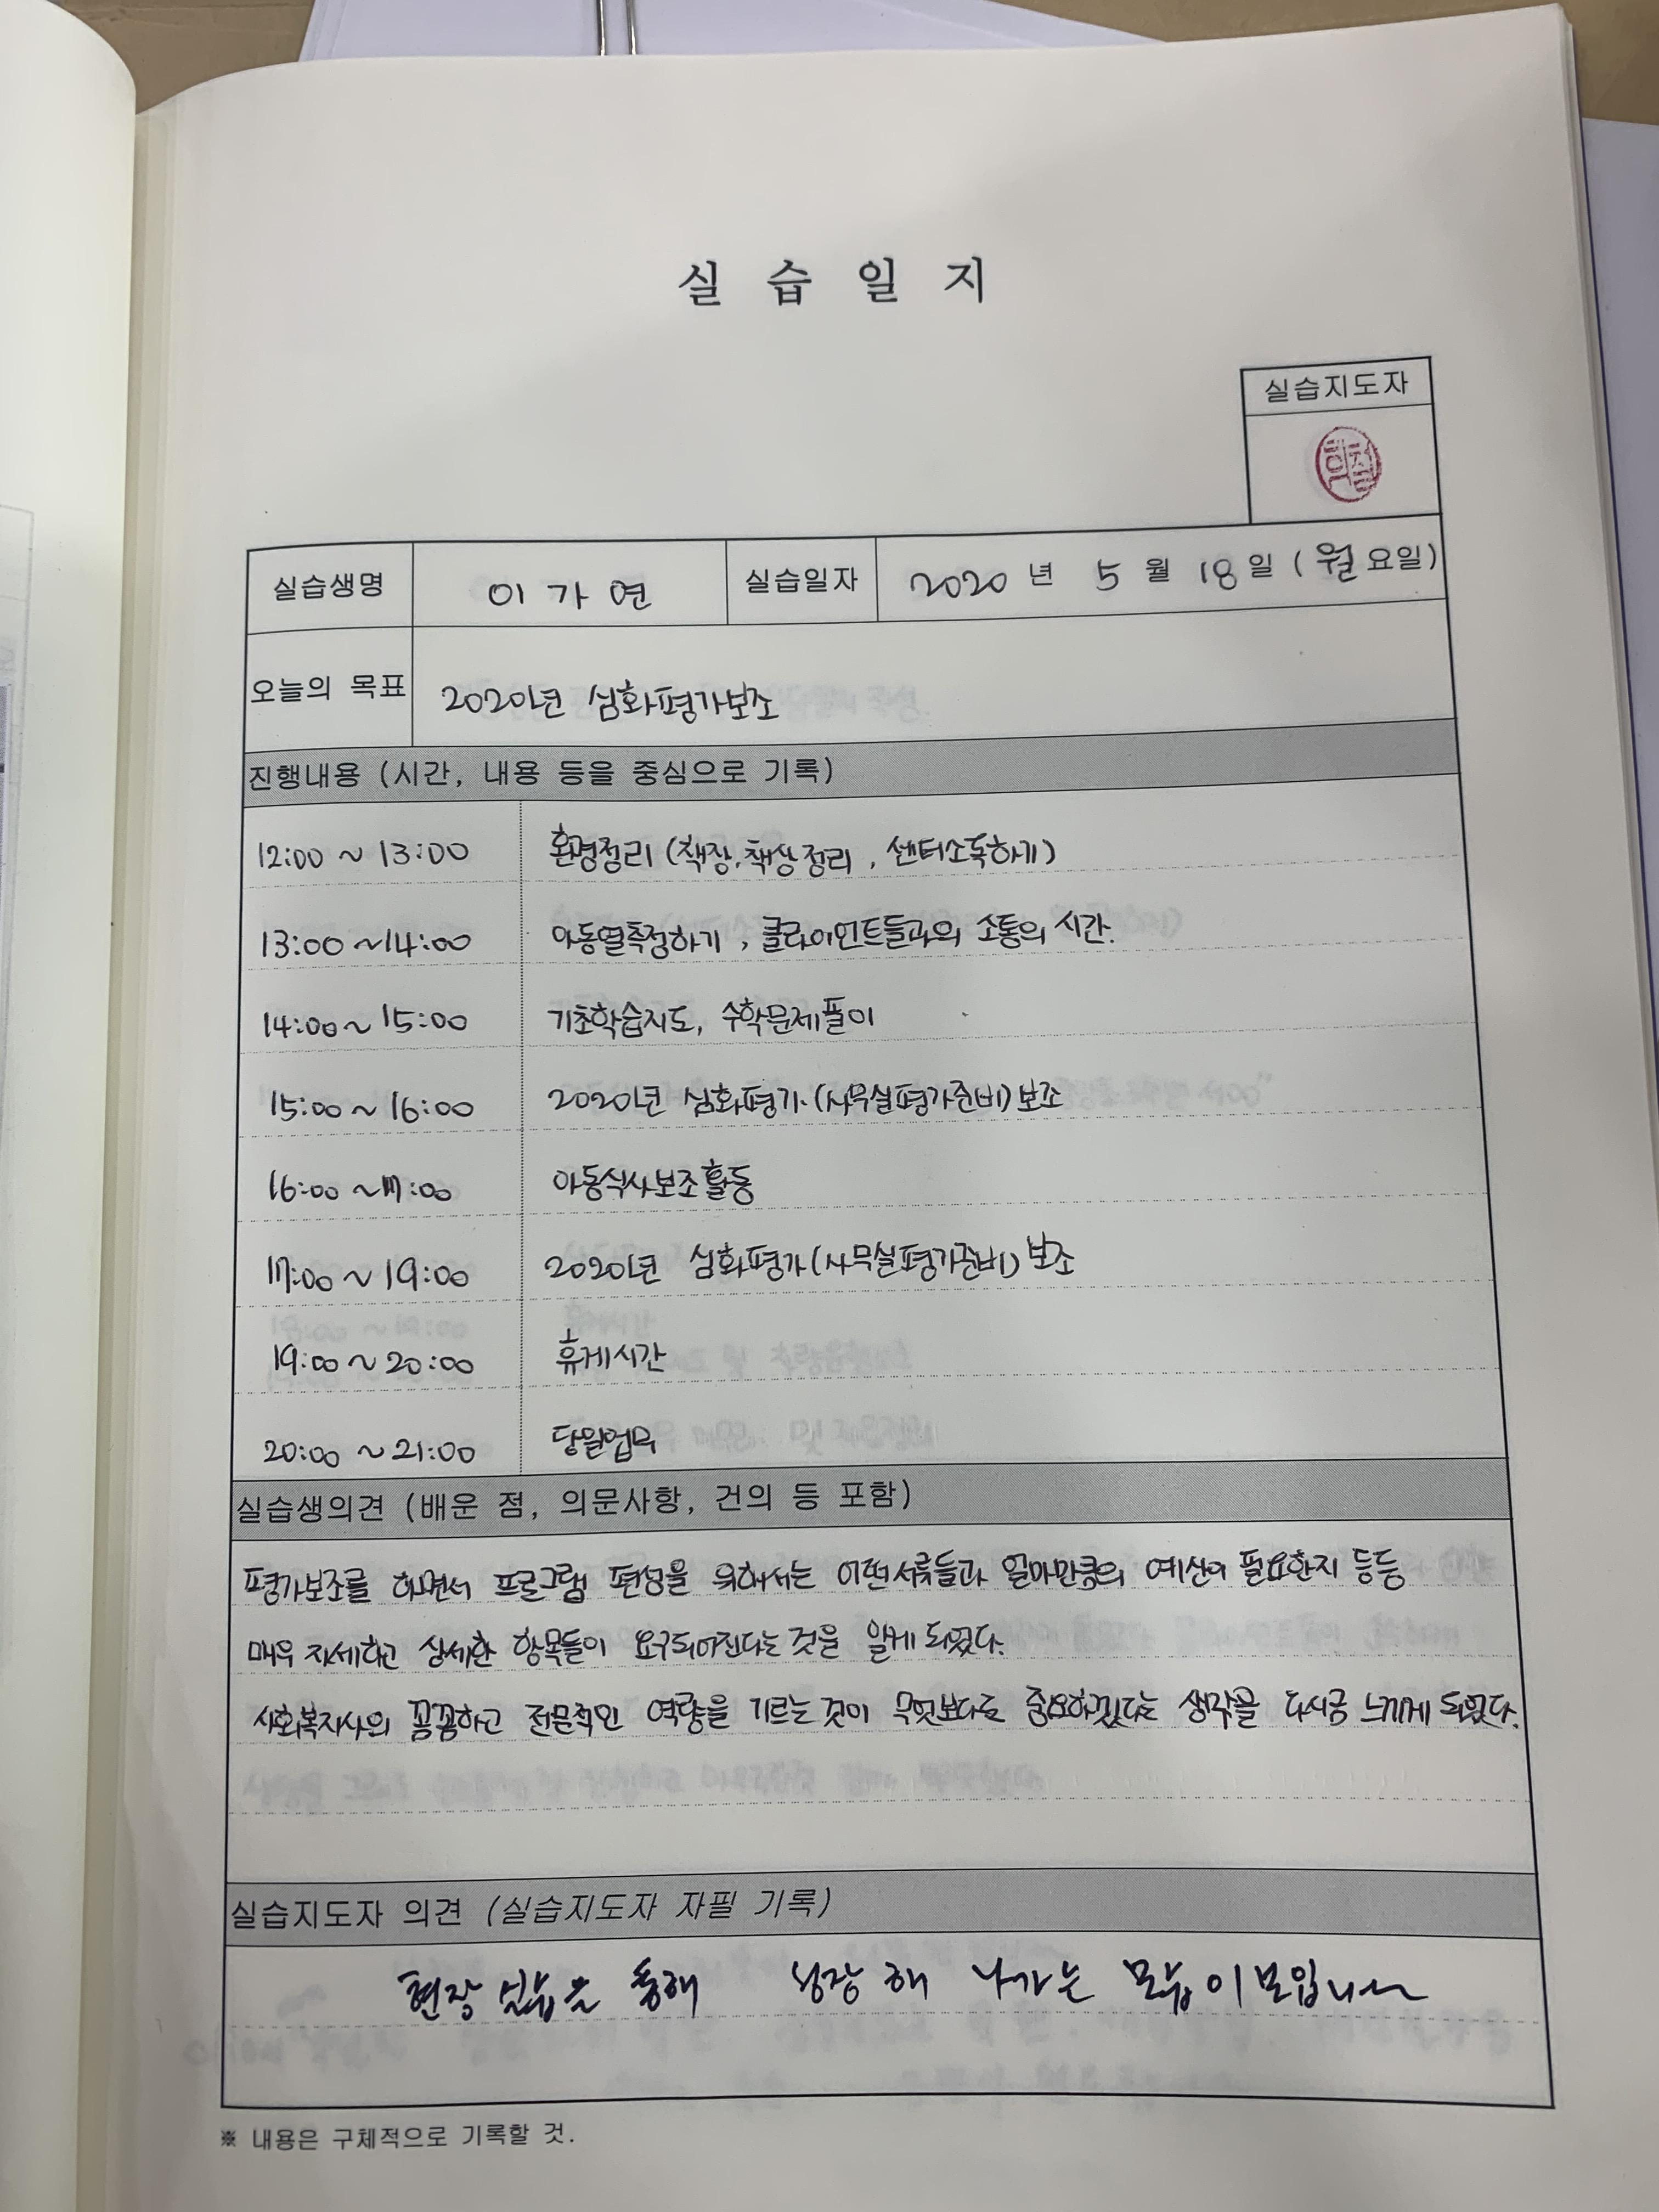 실 습 일 지
실습지도자
실습생명 이가연 실습일자 2020 년 5 월 18 일 (월요일)
오늘의 목표 2020년 심화평가보조
진행내용 (시간, 내용 등을 중심으로 기록)
12:00 ~ 13:00 환경정리 (책장, 책상 정리, 센터소독하기)
13:00 ~ 14:00 아동열측정하기, 클라이언트들과의 소통의 시간.
14:00 ~ 15:00 기초학습지도, 수학문제풀이
15:00 ~ 16:00 2020년 심화평가 (사무실평가준비) 보조
16:00 ~ 17:00 아동식사보조활동
17:00 ~ 19:00 2020년 심화평가 (사무실평가준비) 보조
19:00 ~ 20:00 휴게시간
20:00 ~ 21:00 당일업무
실습생의견 (배운 점, 의문사항, 건의 등 포함)
평가보조를 하면서 프로그램 편성을 위해서는 어떤 서류들과 얼마만큼의 예산이 필요한지 등등
매우 자세하고 상세한 항목들이 요구되어진다는 것을 알게 되었다.
사회복지사의 꼼꼼하고 전문적인 역량을 기르는 것이 무엇보다도 중요하겠다는 생각을 다시금 느끼게 되었다.
실습지도자 의견 (실습지도자 자필 기록)
현장 실습을 통해 성장 해 나가는 모습이 보입니다
※ 내용은 구체적으로 기록할 것.